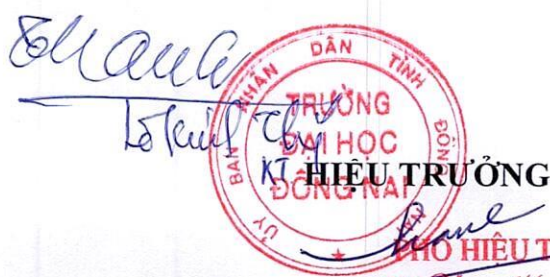 ỦY BAN NHÂN DÂN TỈNH ĐỒNG NAI
TRƯỜNG
ĐẠI HỌC
ĐỒNG NAI
KT. HIỆU TRƯỞNG
PHÓ HIỆU T